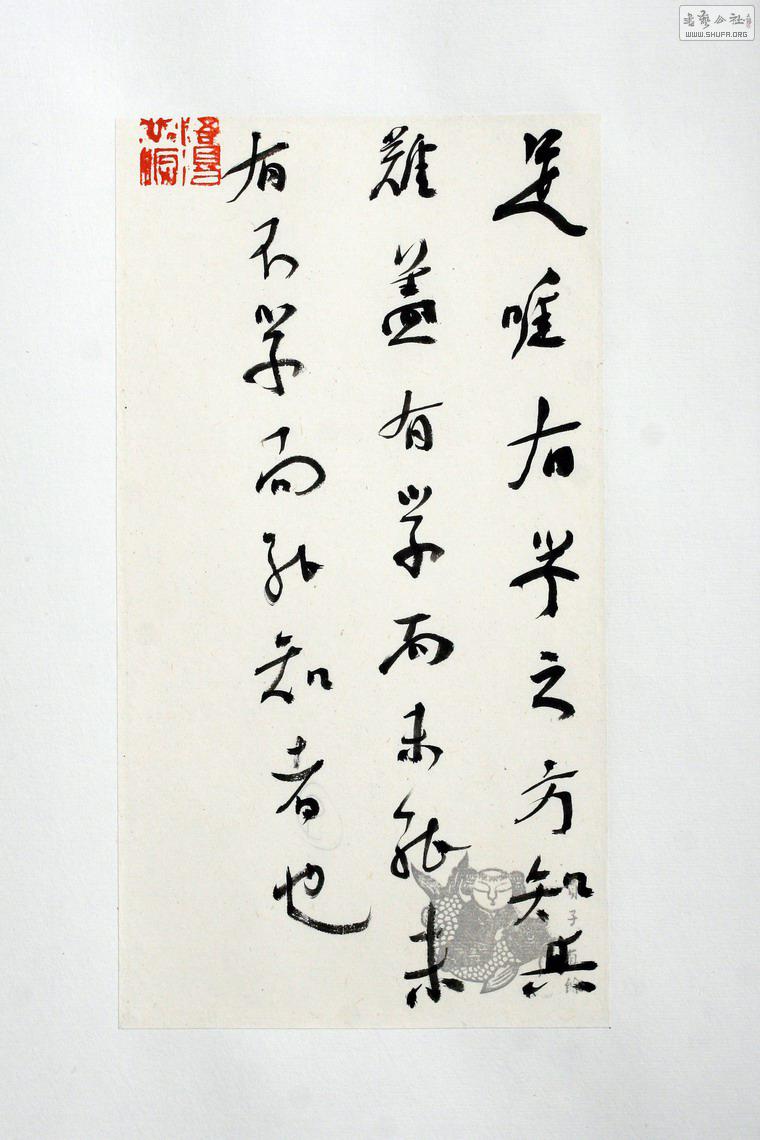 書藝公社
WWW.SHUFA.ORG
是唯有学之方知其
難盖有学而未能未
有不学而能知者也